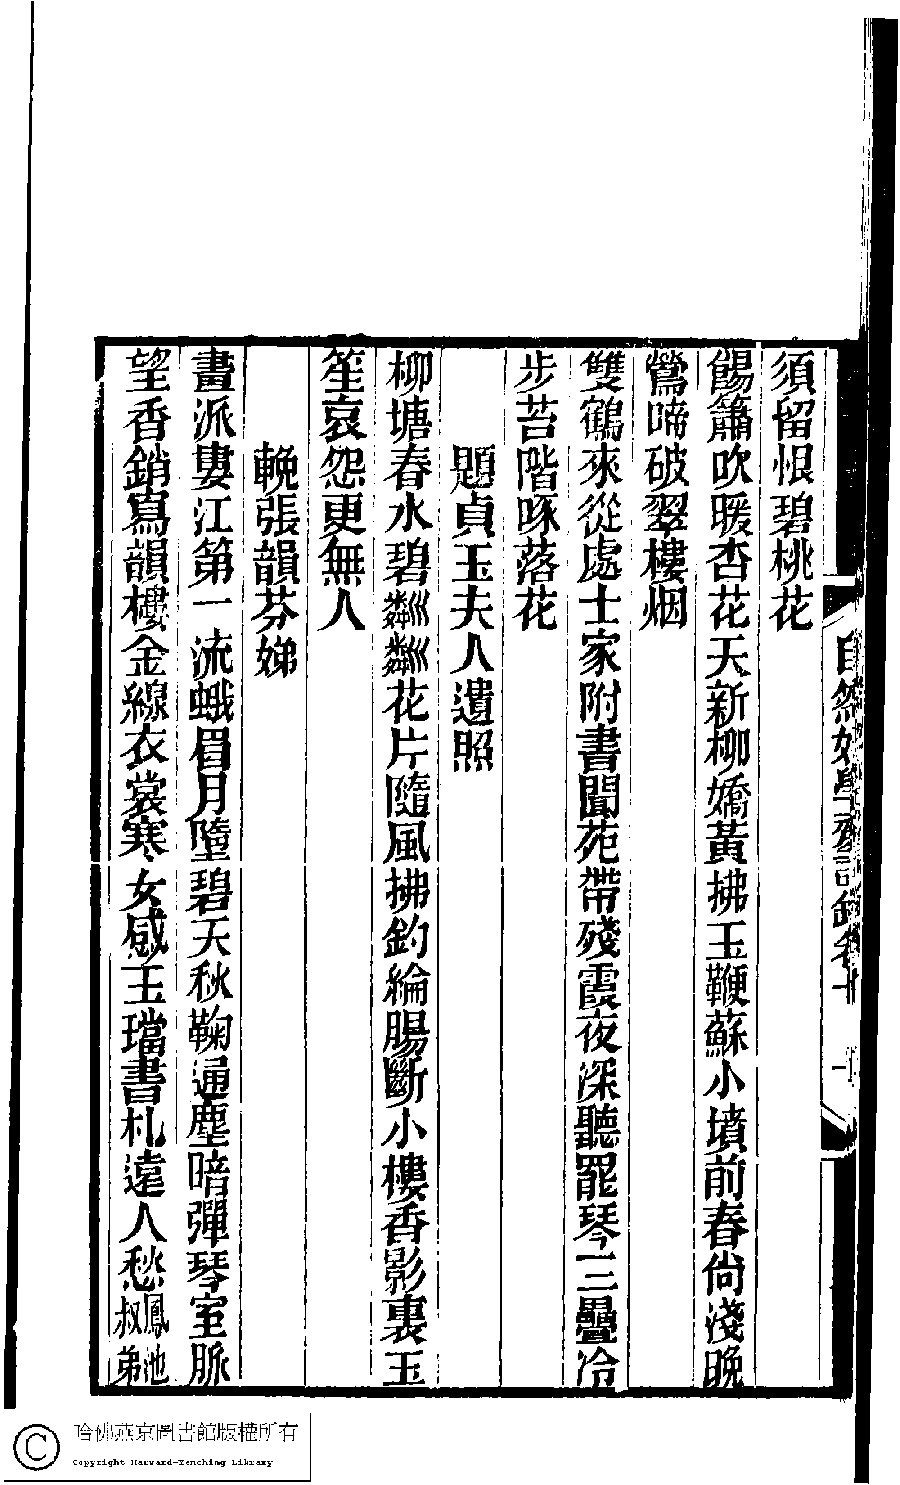 須留恨碧桃花
餳簫吹暖杏花天新柳嬌黃拂玉鞭蘇小墳前春尙淺晚
鶯啼破翠樓烟
雙鶴來從處士家附書聞苑帶殘霞夜深聽罷琴三疊冷
步苔階啄落花
題貞玉夫人遺照
柳塘春水碧粼粼花片隨風拂釣綸腸斷小樓香影裏玉
笙哀怨更無人
輓張韻芬娣
畫派婁江第一流蛾眉月墮碧天秋鞠通塵暗彈琴室脈
望香銷寫韻樓金線衣裳寒女感玉璫書札遠人愁鳳池
叔弟
自然好學齋詩鈔卷十
十
哈佛燕京圖書館版權所有
Copyright Harvard-Yenching Library